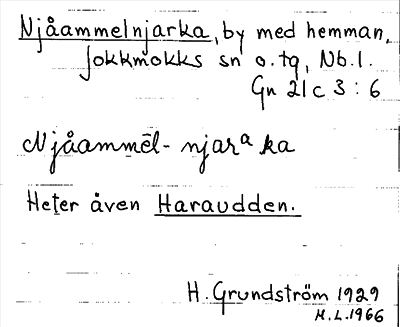 Njåammelnjarka, by med hemman,
Jokkmokks sn o. tg, Nb. l.
Gn 21 c 3 : 6
Njåammēl- njarᵃ ka
Heter även Haraudden.
H. Grundström 1929
M.L. 1966